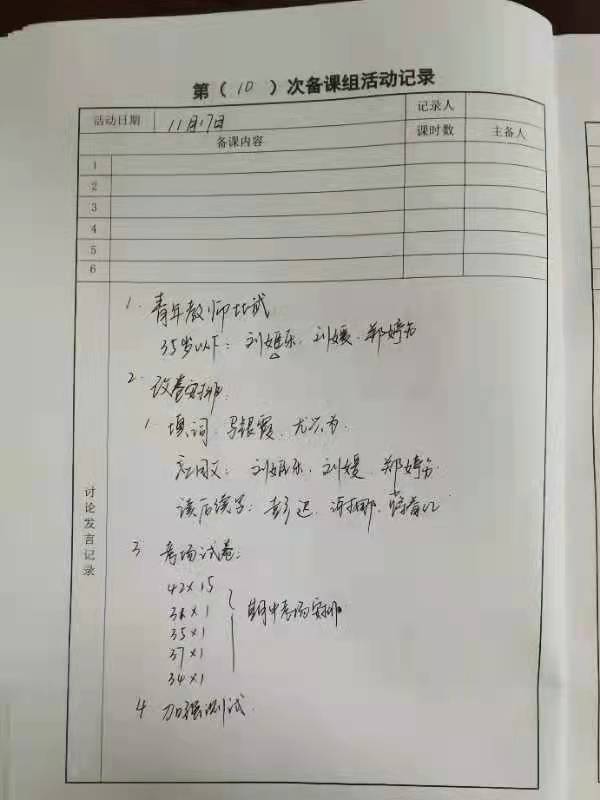 第（10）次备课组活动记录
活动日期 11月17日 记录人
备课内容 课时数 主备人
1
2
3
4
5
6
讨论发言记录
1. 青年教师比试
35岁以下：刘姬乐、刘媛、郑婷
2. 改卷安排
1. 填词、马银霞、尤兴
应用文：刘姬乐、刘媛、郑婷
读后续写：彭迟、
3 考场试卷：
42×15
36×1 期中考场安排
35×1
37×1
34×1
4 加强测试